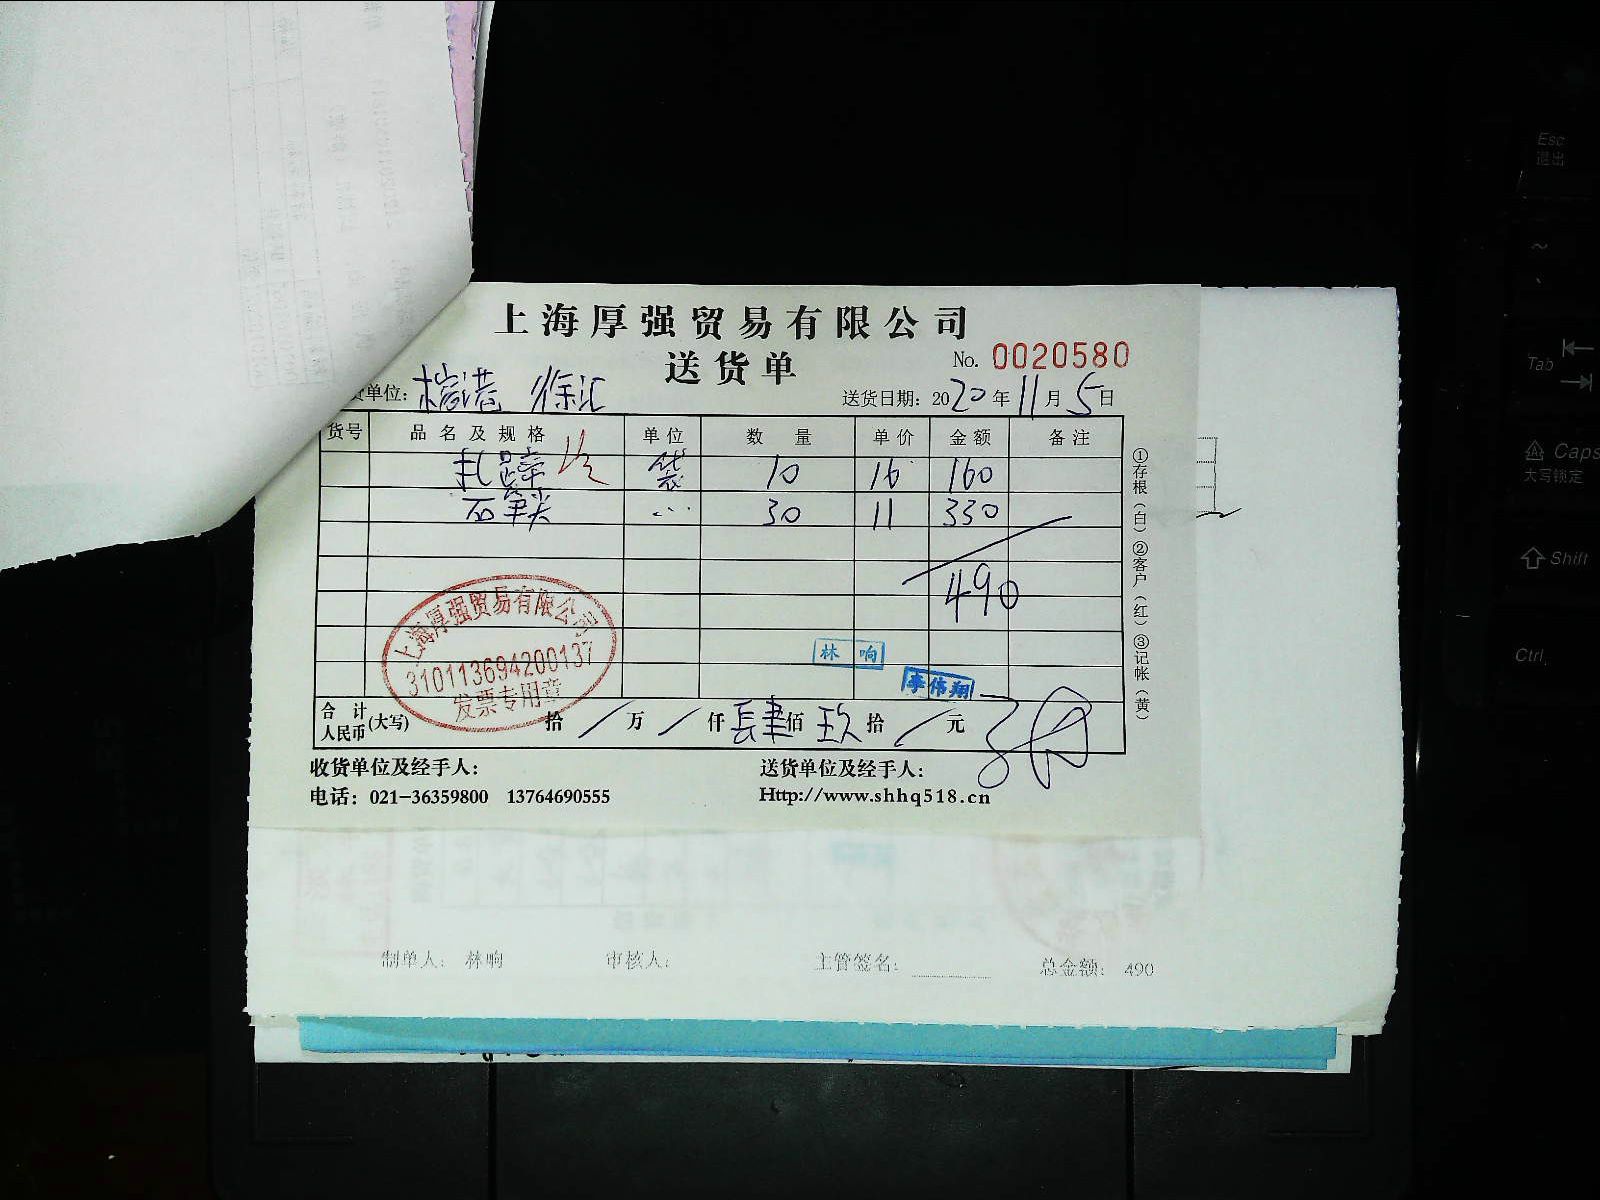 上海厚强贸易有限公司
送货单
No. 0020580
单位: 徐汇
送货日期: 2020年11月5日
货号 品名及规格 单位 数量 单价 金额 备注
袋 10 16 160
石 30 11 330
490
上海厚强贸易有限公司
310113694200137
发票专用章
林响
李伟翔
合计人民币(大写) 拾 / 万 / 仟 肆 佰 玖 拾 / 元
①存根(白)②客户(红)③记帐(黄)
收货单位及经手人:
送货单位及经手人:
电话: 021-36359800 13764690555
Http://www.shhq518.cn
制单人: 林响 审核人: 主管签名: 总金额: 490
Esc
退出
~
Tab
Caps
大写锁定
Shift
Ctrl